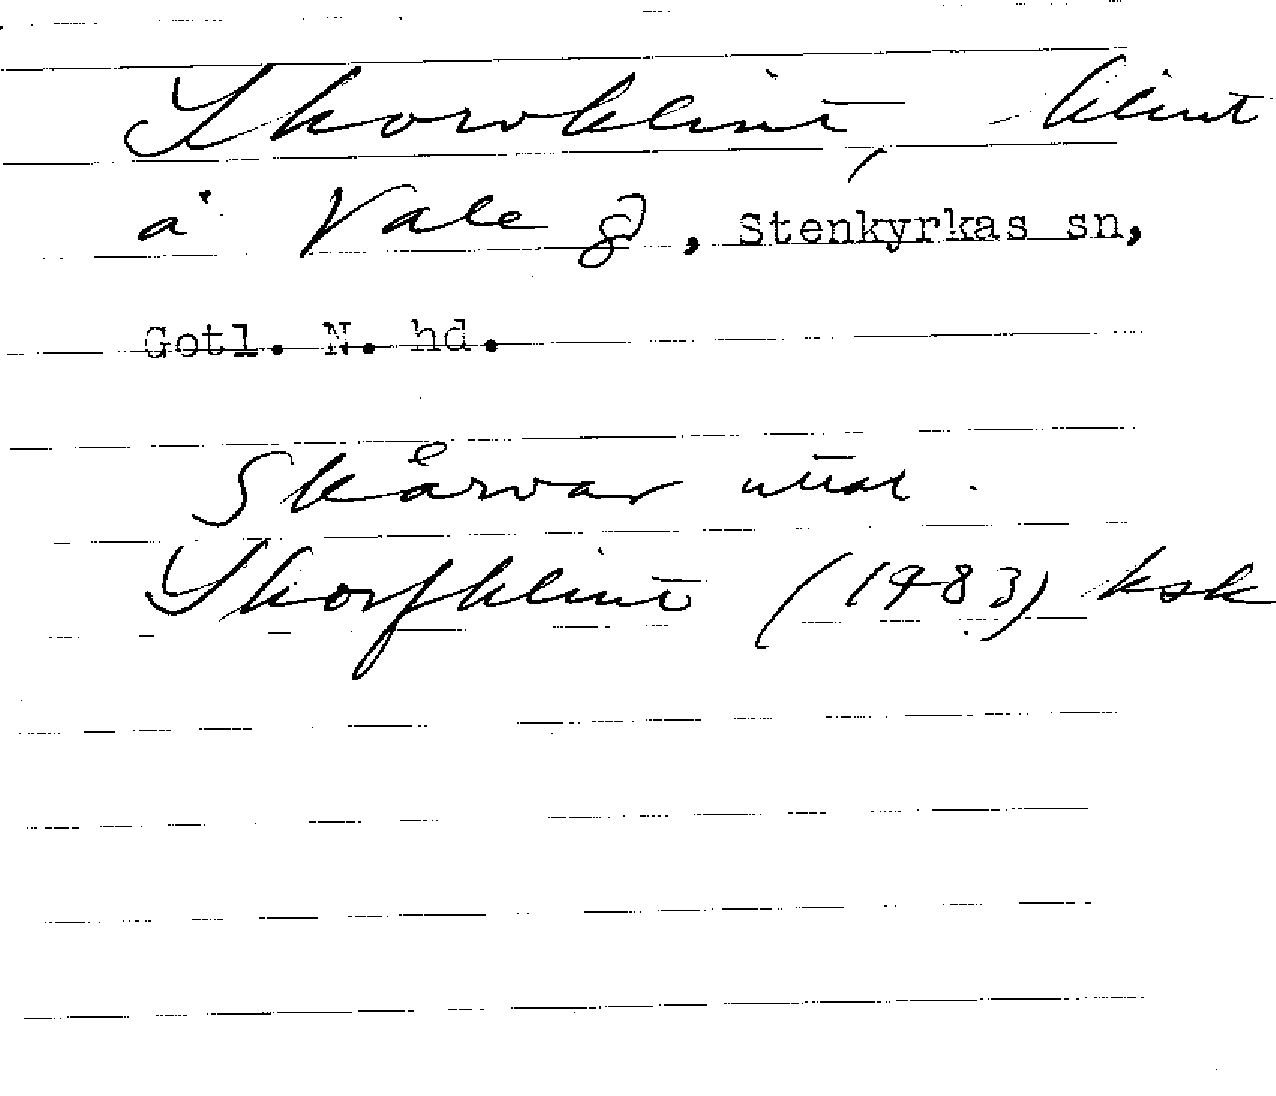 Skorvklint, klint
å Vale g, Stenkyrkas sn,
Gotl. N. hd.
Skårvar uttal.
Skorfklint (1483) ksk